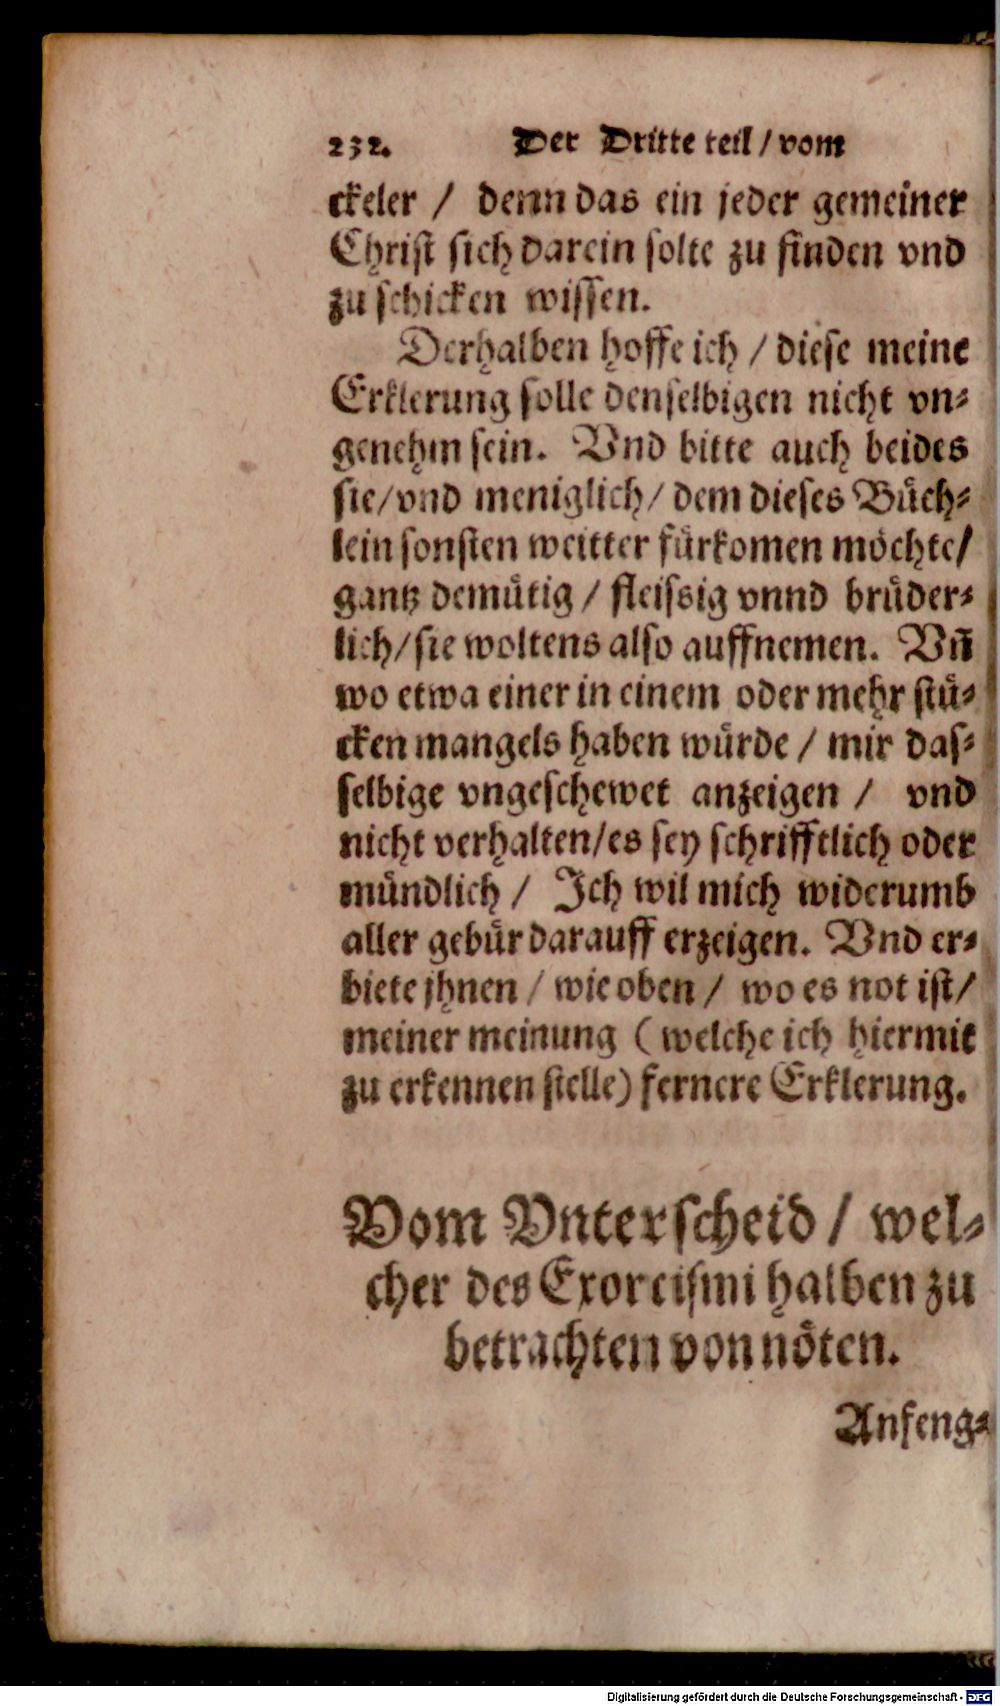 232. Der Dritte teil / vom
ckeler / denn das ein jeder gemeiner
Chriſt ſich darein ſolte zu finden vnd
zu ſchicken wiſſen.
Derhalben hoffe ich / dieſe meine
Erklerung ſolle denſelbigen nicht vn⸗
genehm ſein. Vnd bitte auch beides
ſie/vnd meniglich/ dem dieſes Buͤch⸗
lein ſonſten weitter fuͤrkomen moͤchte/
gantz demuͤtig / fleiſsig vnnd bruͤder⸗
lich/ſie woltens alſo auffnemen. Vñ
wo etwa einer in einem oder mehr ſtuͤ⸗
cken mangels haben wuͤrde / mir daſ⸗
ſelbige vngeſchewet anzeigen / vnd
nicht verhalten/es ſey ſchrifftlich oder
muͤndlich / Ich wil mich widerumb
aller gebuͤr darauff erzeigen. Vnd er⸗
biete jhnen / wie oben / wo es not iſt/
meiner meinung (welche ich hiermit
zu erkennen ſtelle) fernere Erklerung.
Vom Vnterſcheid / wel⸗
cher des Exorciſmi halben zu
betrachten von noͤten.
Anfeng⸗
Digitalisierung gefördert durch die Deutsche Forschungsgemeinschaft - DFG